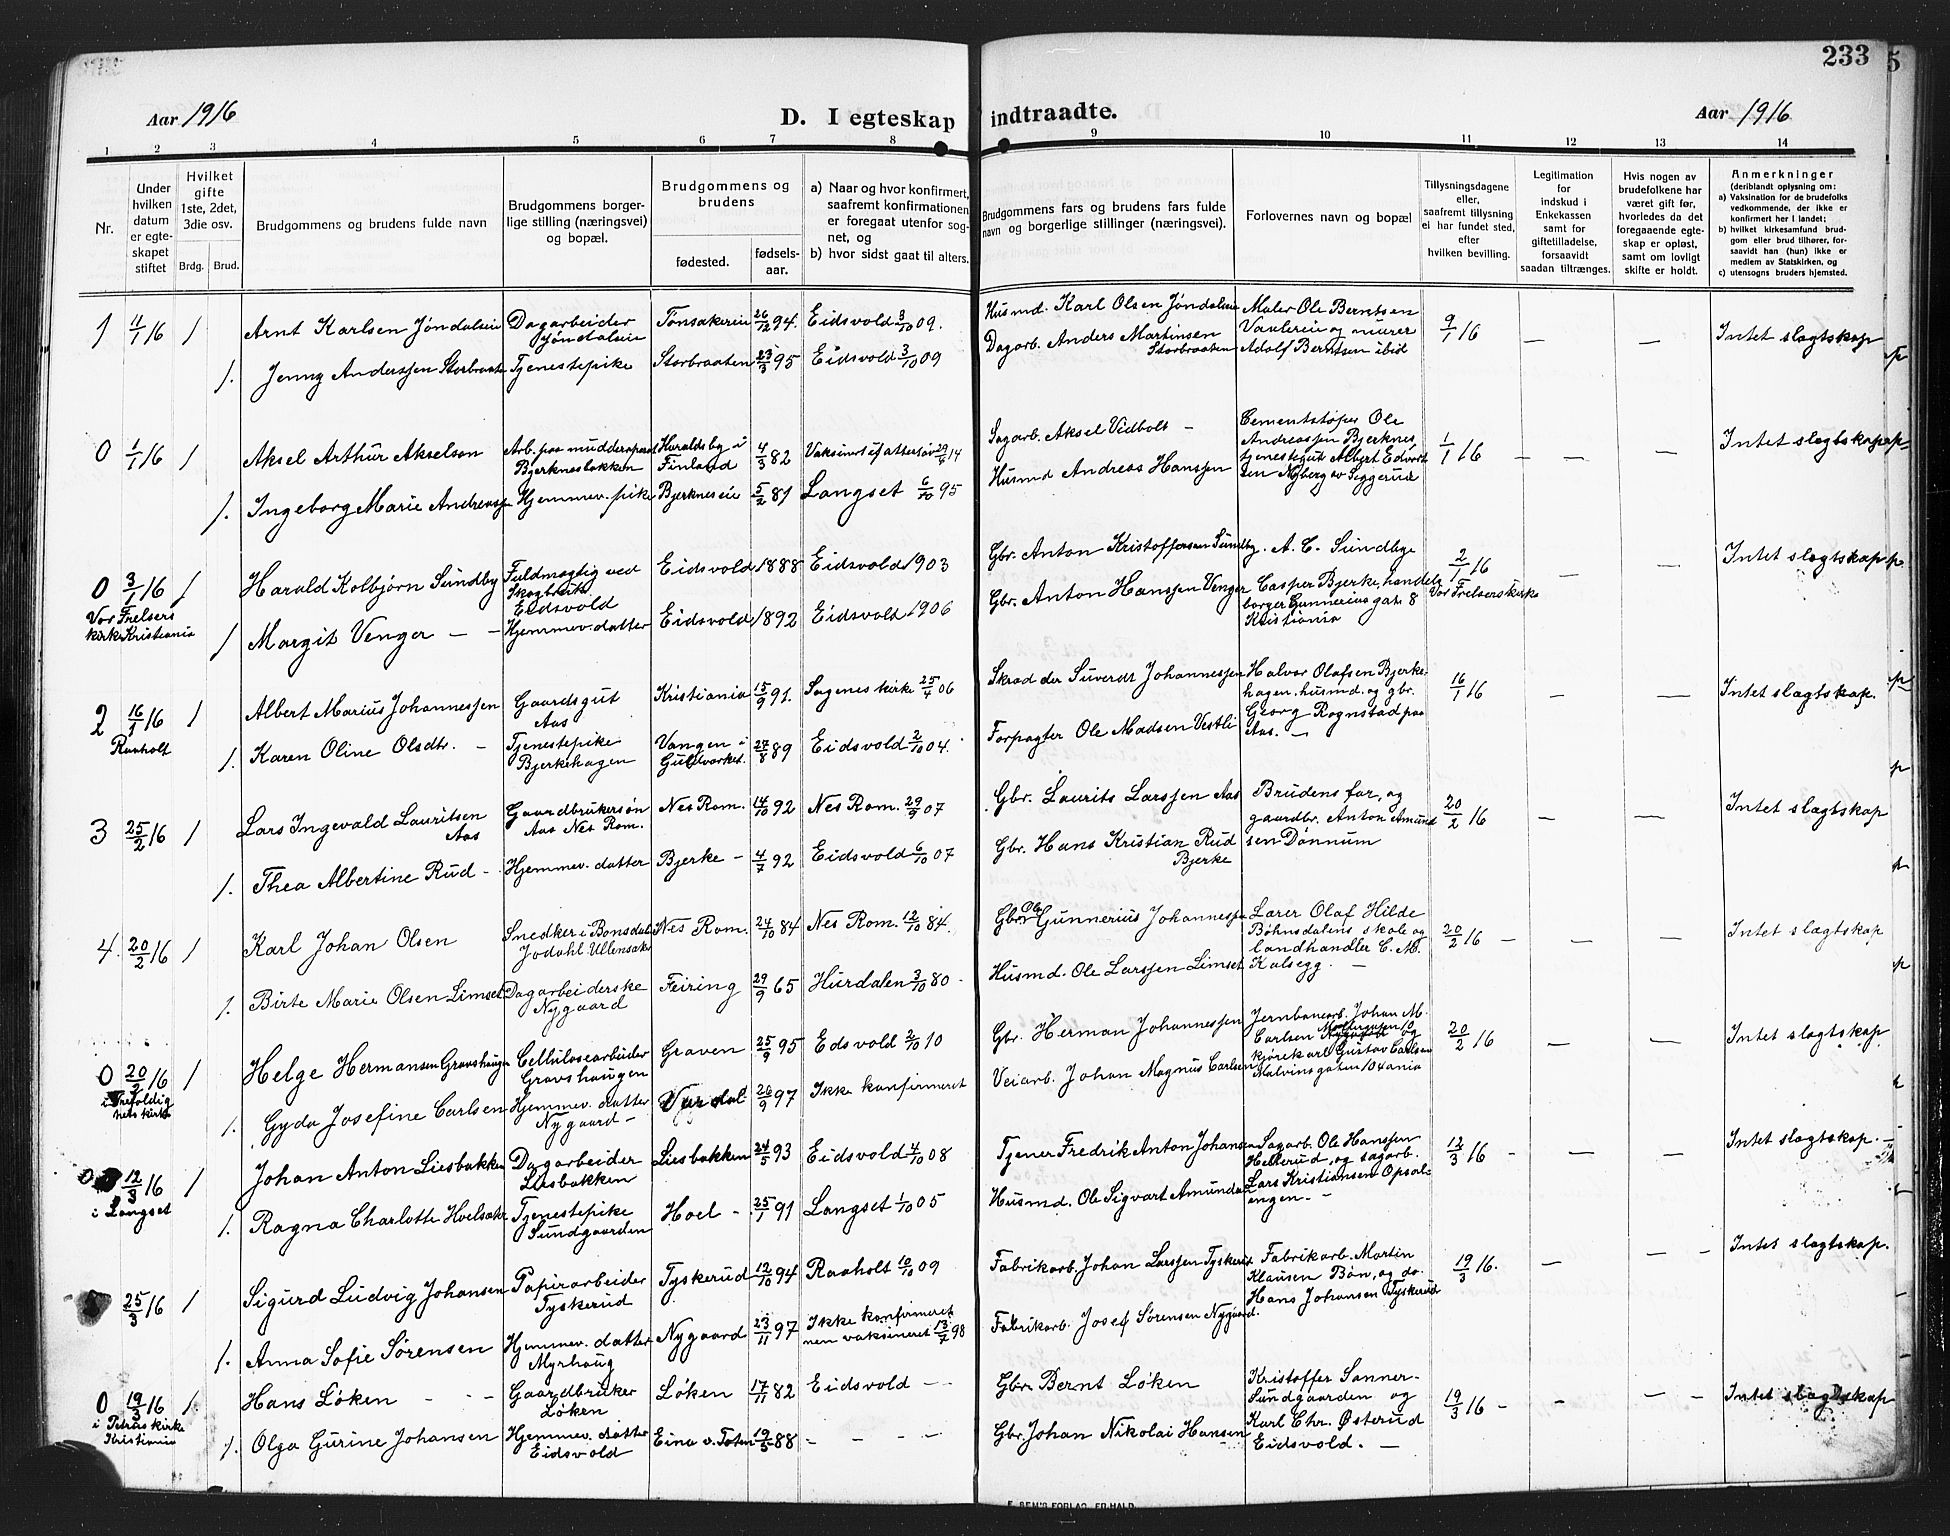 233
Aar 1916
D. I egteskap indtraadte.
Aar 1916
1 2 3 4 5 6 7 8 9 10 11 12 13 14
Nr.
Under hvilken datum er egteskapet stiftet
Hvilket gifte 1ste, 2det, 3die osv.
Brdg. Brud.
Brudgommens og brudens fulde navn
Brudgommens borgerlige stilling (næringsvei) og bopæl.
Brudgommens og brudens
fødested.
fødselsaar.
a) Naar og hvor konfirmert, saafremt konfirmationen er foregaat utenfor sognet, og
b) hvor sidst gaat til alters.
Brudgommens fars og brudens fars fulde navn og borgerlige stillinger (næringsvei).
Forlovernes navn og bopæl
Tillysningsdagene eller, saafremt tillysning ei har fundet sted, efter hvilken bevilling.
Legitimation for indskud i Enkekassen samt for giftetilladelse, forsaavidt saadan tiltrænges.
Hvis nogen av brudefolkene har været gift før, hvorledes da det foregaaende egteskap er opløst, samt om lovligt skifte er holdt.
Anmerkninger
(deriblandt oplysning om:
a) Vaksination for de brudefolks vedkommende, der ikke er konfirmert her i landet;
b) hvilket kirkesamfund brudgom eller brud tilhører, forsaavidt han (hun) ikke er medlem av Statskirken, og
c) utensogns bruders hjemsted.
1 11/1 16 1 Arnt Karlsen Jøndalseie Dagarbeider Jøndalseie Tønsakereie 26/12 94. Eidsvold 3/10 09. Husmd. Karl Olsen Jøndalseie Maler Ole Berntsen Vaulereie og murer Adolf Berntsen ibid 9/1 16 — — Intet slagtskap
1. Jenny Anderssen Storbraaten Tjenestepike Storbraaten 23/3 95 Eidsvold 3/10 09 Dagarb. Anders Martinsen Storbraaten
0 1/1 16 1 Aksel Arthur Akselson Arb. paa mudderapparat Bjerknesbakken Haraldsby i Finland 4/3 82 Sagarb. Aksel Vidbolt — Cementstøper Ole Andreassen Bjerknes, tjenestegut Albert Edvartsen Nyberg av Seggerud 1/1 16 — — — Intet slagtskap
1. Ingeborg Marie Andreassen Hjemmev. pike Bjerkneseie 5/2 81 Langset 6/10 95 Husmd Andreas Hanssen
0 3/1 16 1 Harald Kolbjørn Sundby Fuldmægtig ved Skogbruk Eidsvold Eidsvold 1888 Eidsvold 1903 Gbr. Anton Kristoffersen Sundby. A. C. Sundbye 2/1 16 Vor Frelsers kirke — — Intet slagtskap
Vor Frelsers kirke Kristiania
1 Margit Venger — — Hjemmev. datter Eidsvold 1892 Eidsvold 1906 Gbr. Anton Hanssen Venger Casper Bjerke, handelsborger Gunnerius gat. 8 Kristiania
2 16/1 16 1 Albert Marius Johannessen Gaardsgut Aas Kristiania 15/9 91. Sagenes kirke 25/4 06 Skrædder Johannessen Halvor Olafsen Bjerkehagen, husmd. og gbr. Georg Rognstad paa Aas. — 16/1 16 — — Intet slagtskap.
Raaholt
1. Karen Oline Olsdtr. — Tjenestepike Bjerkehagen Vangen i Guldverket. 27/8 89 Eidsvold 2/10 04. Forpagter Ole Madsen Vestli
3 25/2 16 1 Lars Ingevald Lauritsen Aas Gaardbrukersøn Aas Nes Rom. Nes Rom. 14/10 92 Nes Rom. 29/9 07 Gbr. Laurits Larssen Aas Brudens far, og gaardbr. Anton Amundsen Dønnum 20/2 16 — — Intet slagtskap
1. Thea Albertine Rud — Hjemmev. datter Bjerke — 4/7 92 Eidsvold 6/10 07 Gbr. Hans Kristian Rud Bjerke
4. 20/2 16 1 Karl Johan Olsen Snedker i Bonsdal Jodahl Ullensaker Nes Rom. 24/10 84 Nes Rom. 12/10 84. Gbr. Ole Gunnerius Johannessen Lærer Olaf Hilde Bøhnsdalens skole og landhandler C. M. Kalsegg. — 20/2 16 — — — Intet slagtskap
1. Birte Marie Olsen Limset Dagarbeiderske Nygaard Feiring 29/9 65 Hurdalen 3/10 80 Husmd. Ole Larssen Limset
0 20/2 16 1 Helge Hermansen Gravshaugen Cellulosearbeider Gravshaugen Graven 25/9 95 Edsvold 2/10 10 Gbr. Herman Johannessen Jernbanearb. Johan M. Carlsen og kjørekarl Gustav Carlsen Malvins gaten 10 4 ania 20/2 16 — — Intet slagtskap
i Trefoldighets kirke
1. Gyda Josefine Carlsen Hjemmev. datter Nygaard — Vardal 20/9 97 Ikke konfirmeret Veiarb. Johan Magnus Carlsen
0 12/3 16 1 Johan Anton Liesbakken Dagarbeider Liesbakken Liesbakken 24/5 93 Eidsvold 4/10 08 Tjener Fredrik Anton Johansen Sagarb. Ole Hanssen Hellerud, og sagarb. Lars Kristiansen Opsalengen. — 12/3 16 — — — Intet slagtskap.
i Langset
1. Ragna Charlotte Hoelsætr Tjenestepike Sundgaarden Hoel — 25/1 91 Langset 1/10 05 Husmd. Ole Sigvart Amundsen
25/3 16 1 Sigurd Ludvig Johansen Papirarbeider Tyskerud Tyskerud 12/10 94 Raaholt 10/10 09 Fabrikarb. Johan Larssen Tyskerud Fabrikarb. Martin Klausen Bøn, og do. Hans Johansen Tyskerud 19/3 16. — — — Intet slagtskap.
1. Anna Sofie Sørensen Hjemmev. datter Myrhaug Nygaard 23/11 97 Ikke konfirmeret men vaksineret 13/7 98 Fabrikarb. Josef Sørensen Nygaard.
0 19/3 16 1. Hans Løken — — Gaardbruker Løken Løken 17/11 82 Eidsvold — — Gbr. Bernt Løken Kristoffer Sanner-Sundgaarden og Karl Chr. Østerud Eidsvold. — 19/3 16 — — — — Intet slagtskap
i Petrus kirke Kristiania
1. Olga Gurine Johansen Hjemmev. datter Eidsvold Eina v. Toten 19/5 88 — — — — Gbr. Johan Nikolai Hansen